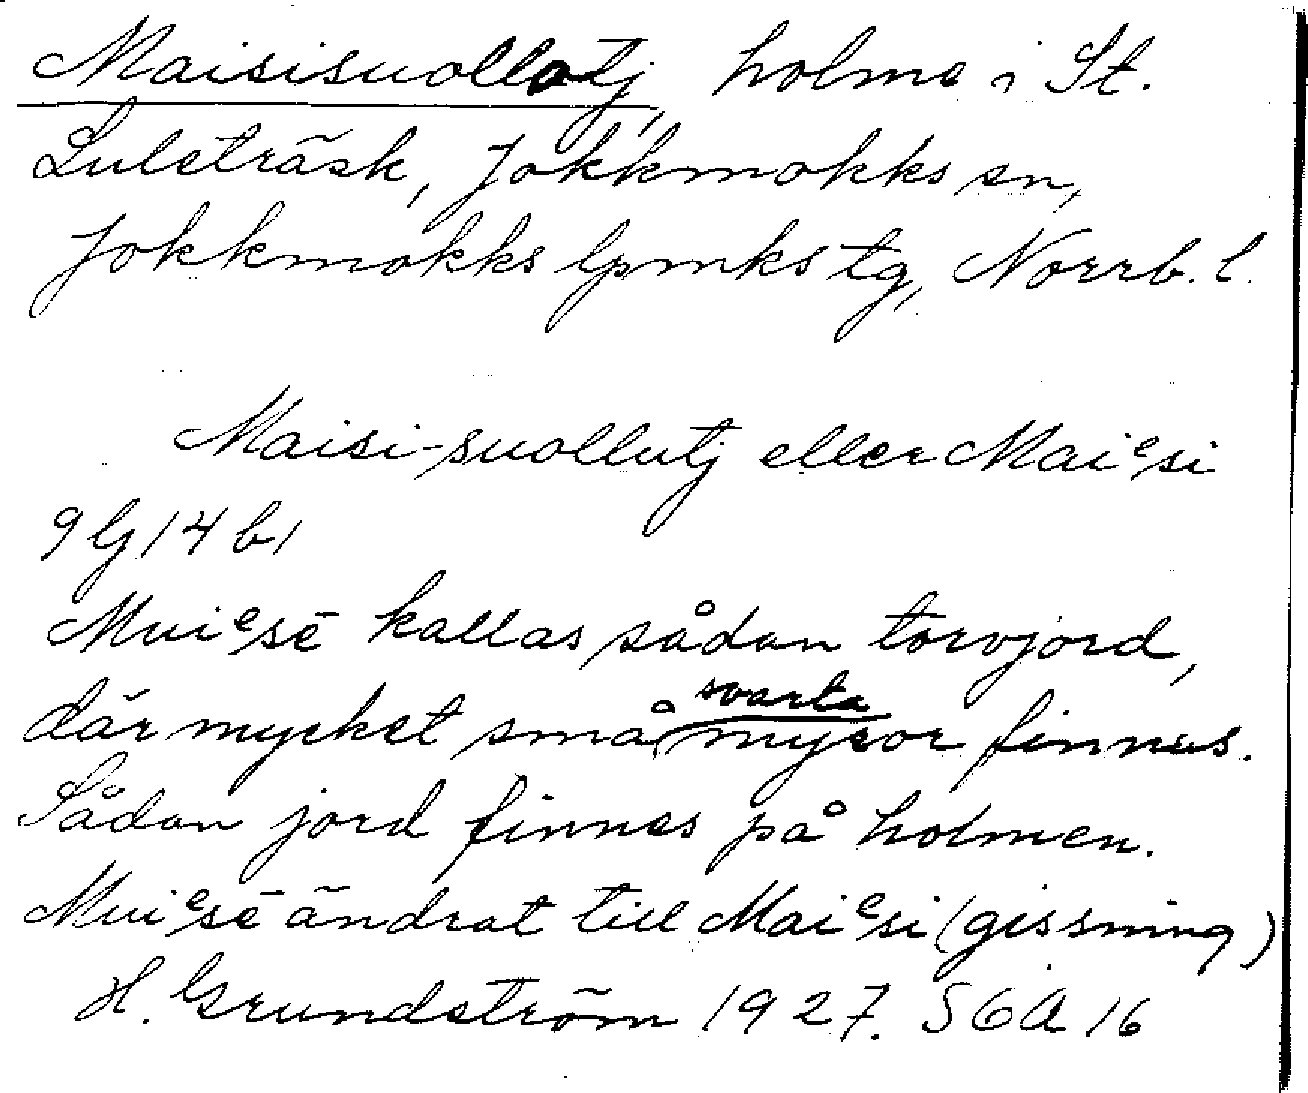 Maisisuollotj, holme i St.
Luleträsk, Jokkmokks sn,
Jokkmokks lpmks tg, Norrb. l.
Maisi-suollutj eller Maiᵉsi
9 lj 14 b1
Muiᵉsē kallas sådan torvjord,
där mycket små svarta myror finnas.
Sådan jord finnes på holmen.
Muiᵉsē ändrat till Maiᵉsi (gissning)
H. Grundström 1927. SGA 16